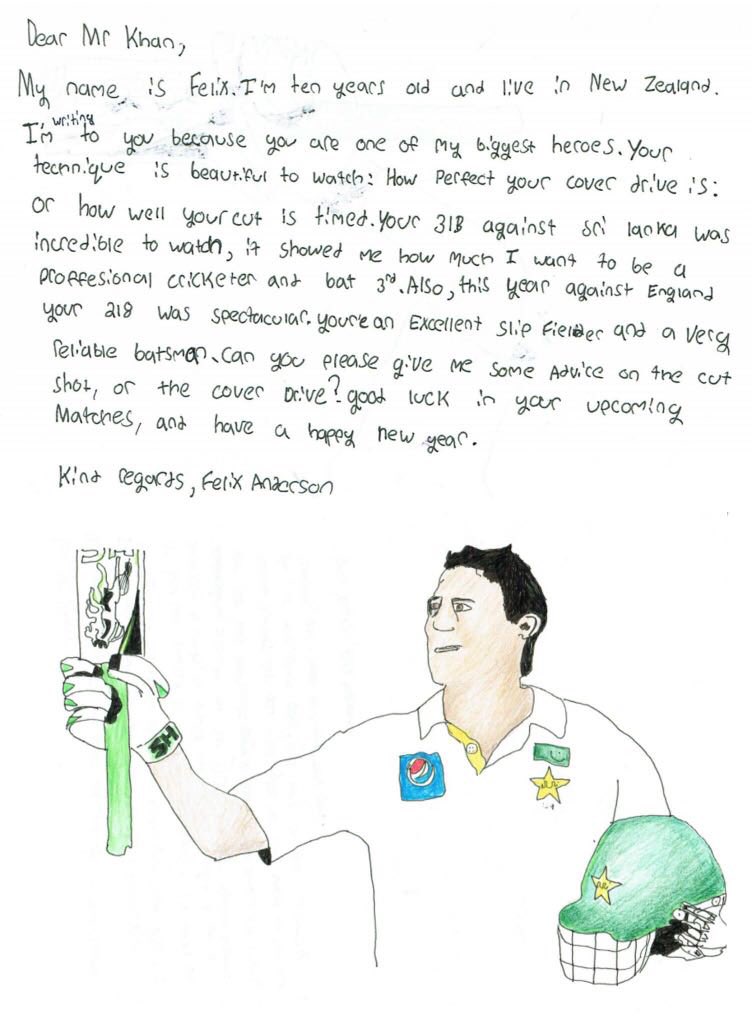 Dear Mr Khan,
My name is Felix. I'm ten years old and live in New Zealand.
I'm writing to you because you are one of my biggest heroes. Your
technique is beautiful to watch: How perfect your cover drive is:
or how well your cut is timed. Your 313 against Sri lanka was
incredible to watch, it showed me how much I want to be a
proffesional cricketer and bat 3rd. Also, this year against England
your 218 was spectacular. youre an Excellent slip Fielder and a very
reliable batsman. Can you please give me some Advice on the cut
shot, or the cover Drive? good luck in your upcoming
Matches, and have a happy new year.
Kind regards, Felix Anderson
SH
SH